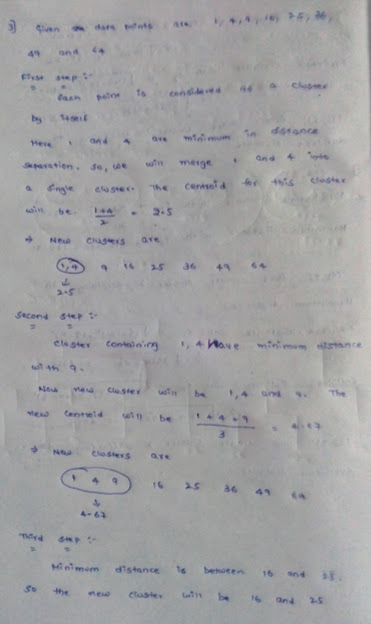 3) Given the data points are 1, 4, 9, 16, 25, 36,
49 and 64
First step :-
Each point is considered as a cluster
by itself
Here 1 and 4 are minimum in distance
separation. So, we will merge 1 and 4 into
a single cluster. The centroid for this cluster
will be 1+4/2 = 2.5
⇒ New clusters are
1,4 9 16 25 36 49 64
↓
2.5
Second step :-
Cluster containing 1, 4 have minimum distance
with 9.
Now new cluster will be 1,4 and 9. The
new centroid will be 1+4+9/3 = 4.67
⇒ New clusters are
1 4 9 16 25 36 49 64
↓
4.67
Third step :-
Minimum distance is between 16 and 25.
So the new cluster will be 16 and 25